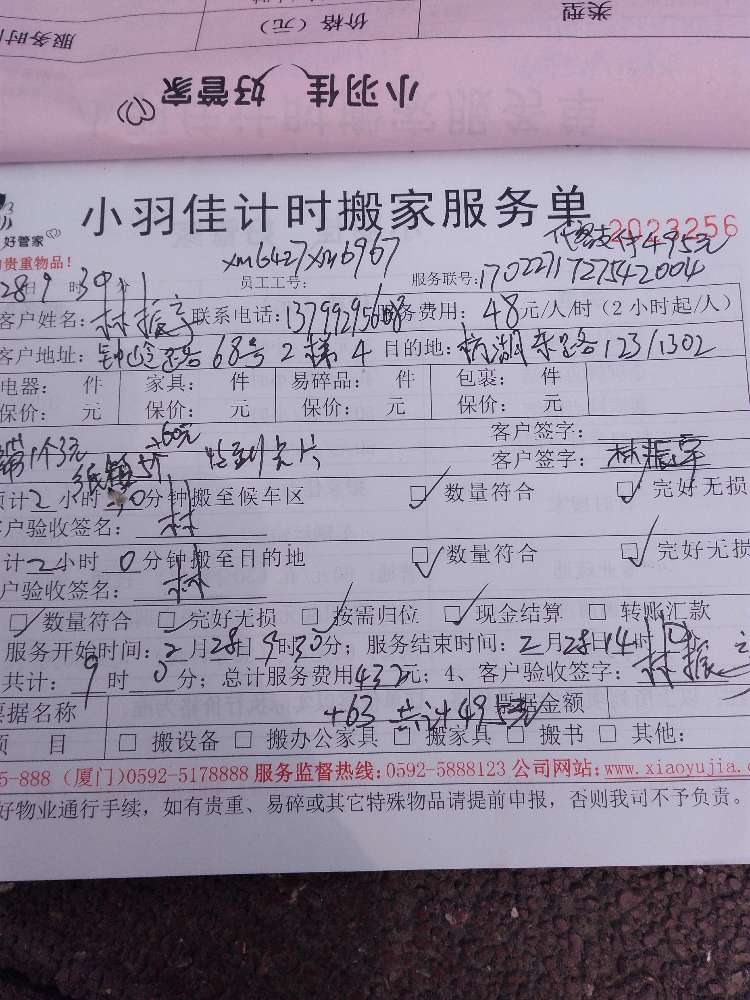 服务时
价格（元）
类型
小羽佳 好管家
小羽佳计时搬家服务单
2023256
好管家
贵重物品！
xm6427xm6967
代收支付495元
员工工号：
服务联号：1702271727542004
28日9时30分
客户姓名：林振宇 联系电话：13799295608 服务费用：48元/人/时（2小时起/人）
客户地址：68号2梯4 目的地：杨湖东路123/1302
电器： 件 家具： 件 易碎品： 件 包裹： 件
保价： 元 保价： 元 保价： 元 保价： 元
客户签字：
1个3元 纸箱5个 +60元 卡片
客户签字：林振宇
预计2小时0分钟搬至候车区 数量符合 完好无损
客户验收签名：林
计2小时0分钟搬至目的地 数量符合 完好无损
户验收签名：林
数量符合 完好无损 按需归位 现金结算 转账汇款
服务开始时间：2月28日9时30分；服务结束时间：2月28日14时10
共计：9时0分；总计服务费用432元；4、客户验收签字：林振宇
票据名称 票据金额
+63 共计495元
项 目 搬设备 搬办公家具 搬家具 搬书 其他：
5-888（厦门）0592-5178888 服务监督热线：0592-5888123 公司网站：www.xiaoyujia.c
好物业通行手续，如有贵重、易碎或其它特殊物品请提前申报，否则我司不予负责。